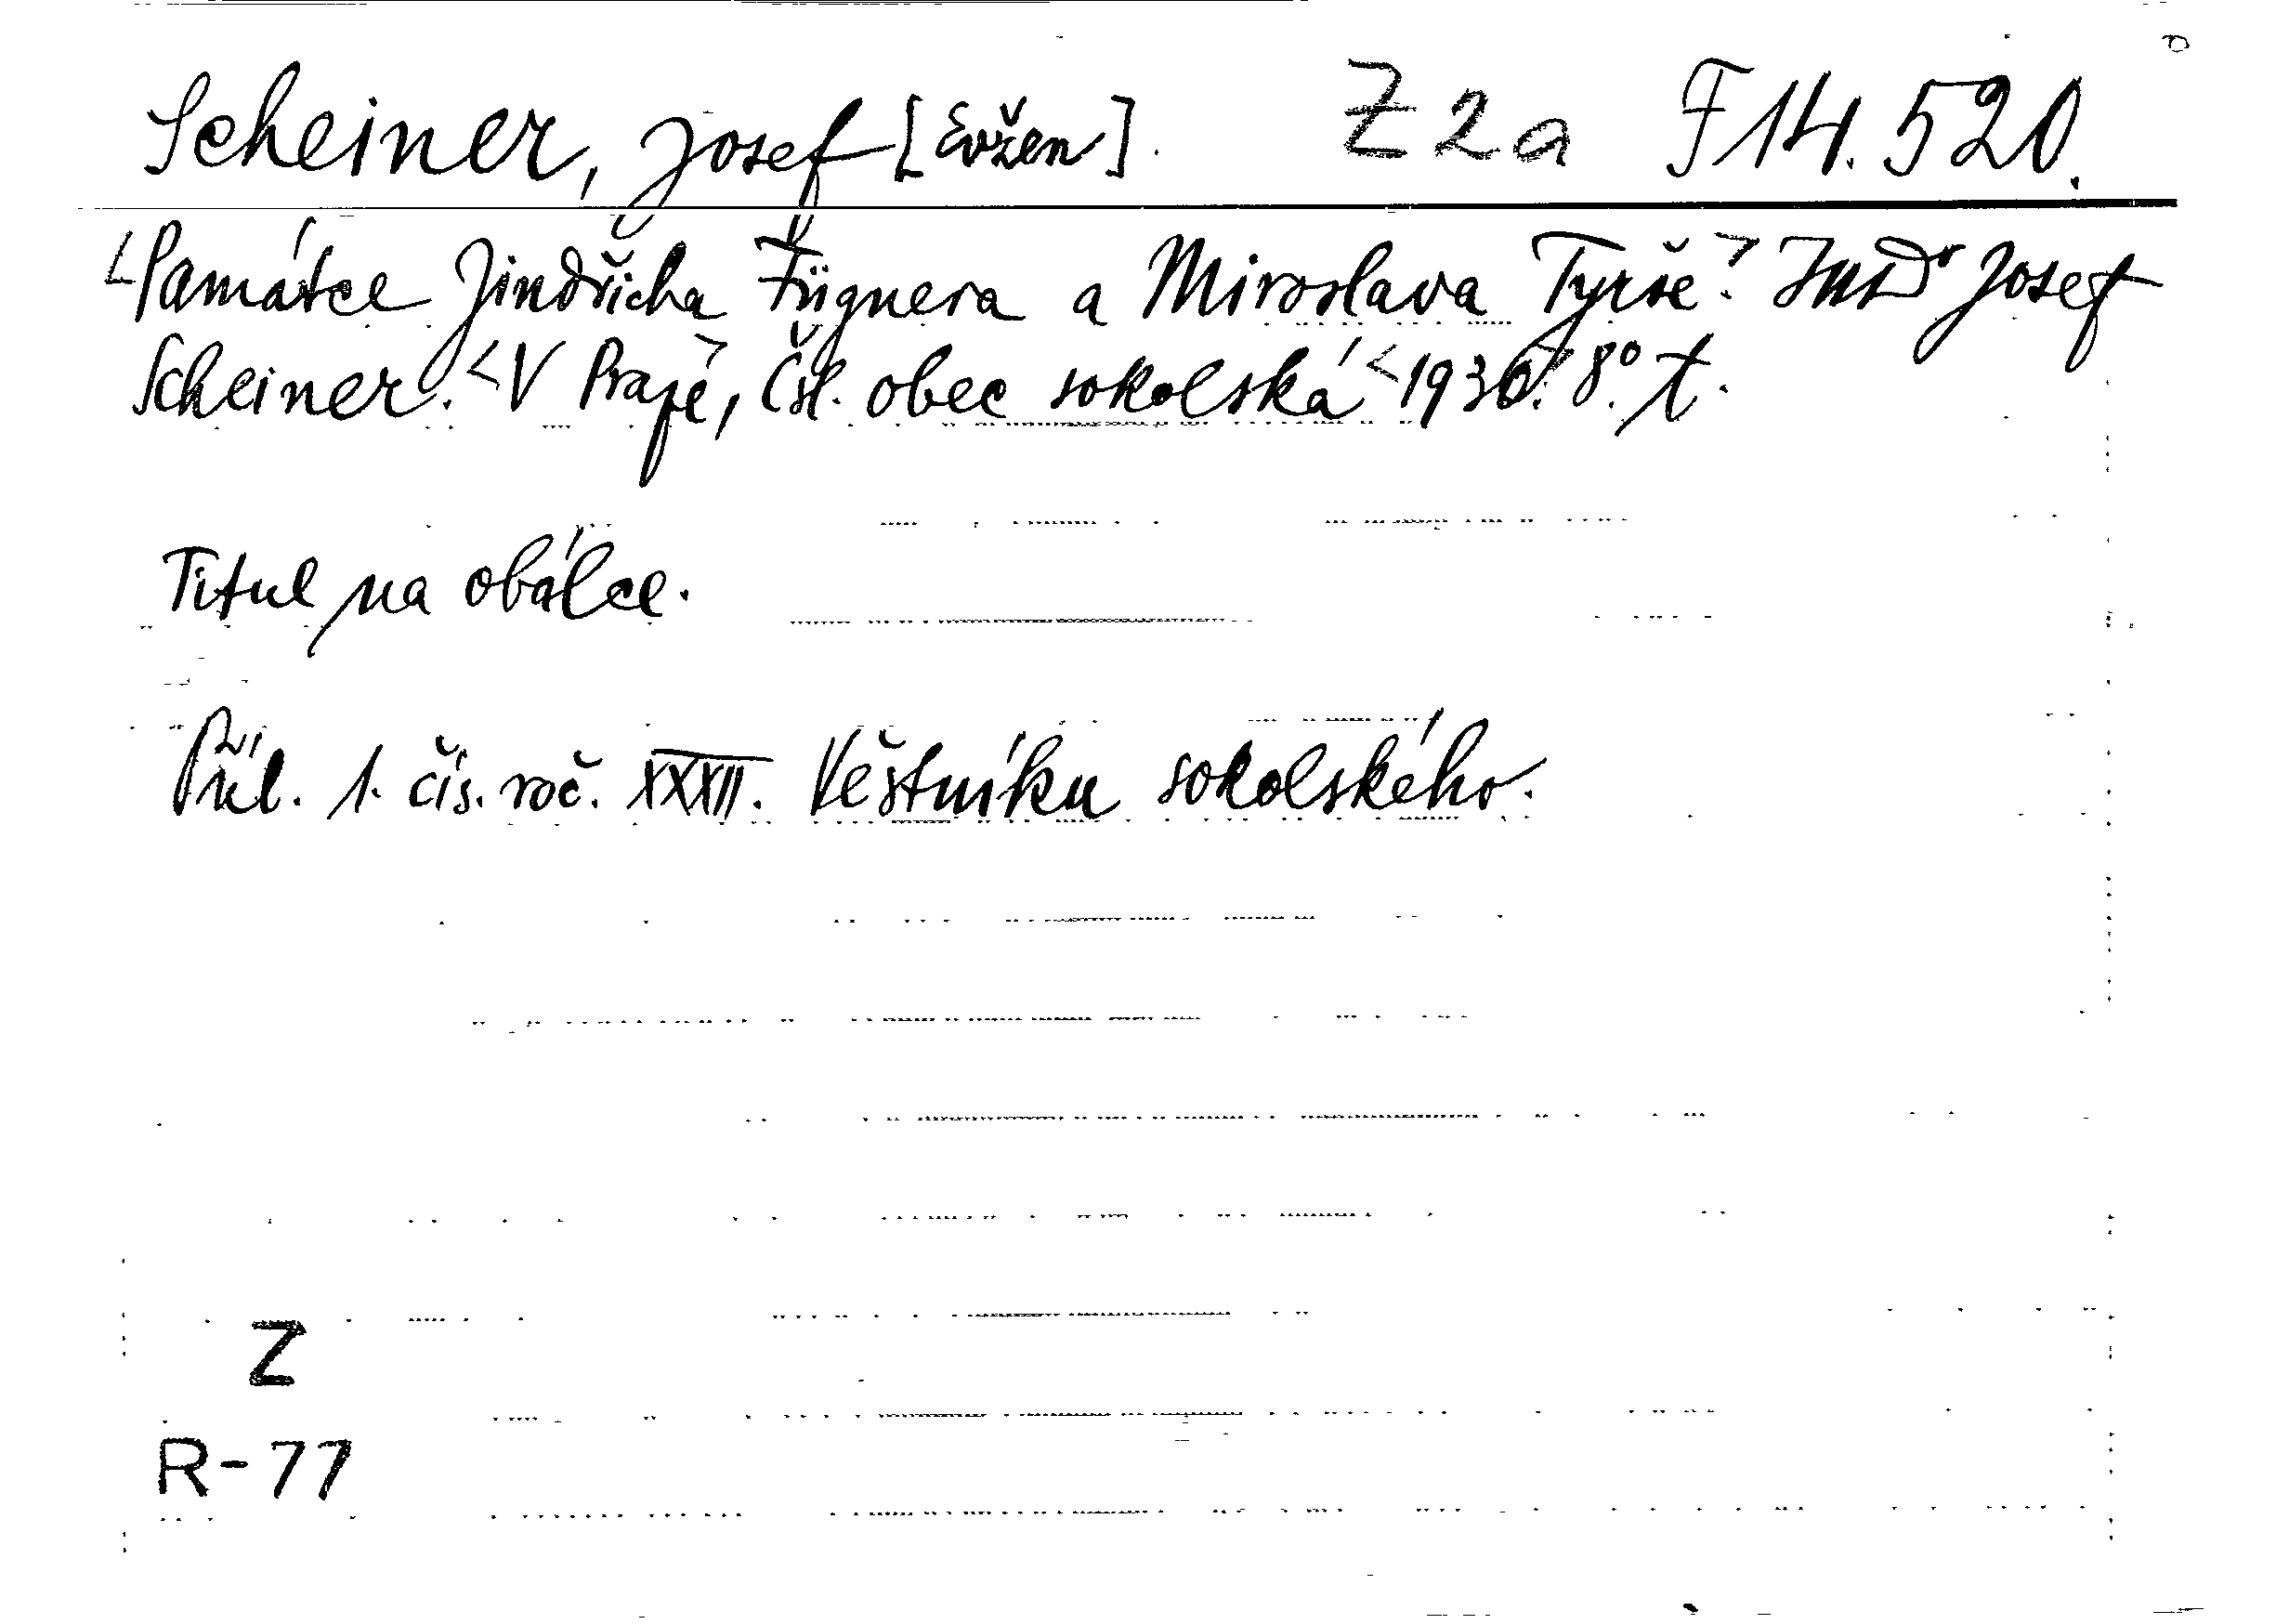 Scheiner, Josef [Evžen]. Z 2 a F 14.520.
<Památce Jindřicha Fügnera a Miroslava Tyrše>. JUDr Josef
Scheiner. <V Praze>, Čsl. obec sokolská <1930>. 8°. t.
Titul na obálce.
Příl. 1. čís. roč. XXXII. Věstníku sokolského.
Z
R-77